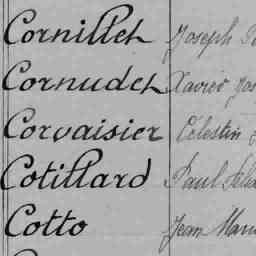 Cornillet Joseph
Cornudet Xavier
Corvaisier Célestin
Cotillard Paul
Cotto Jean Marie